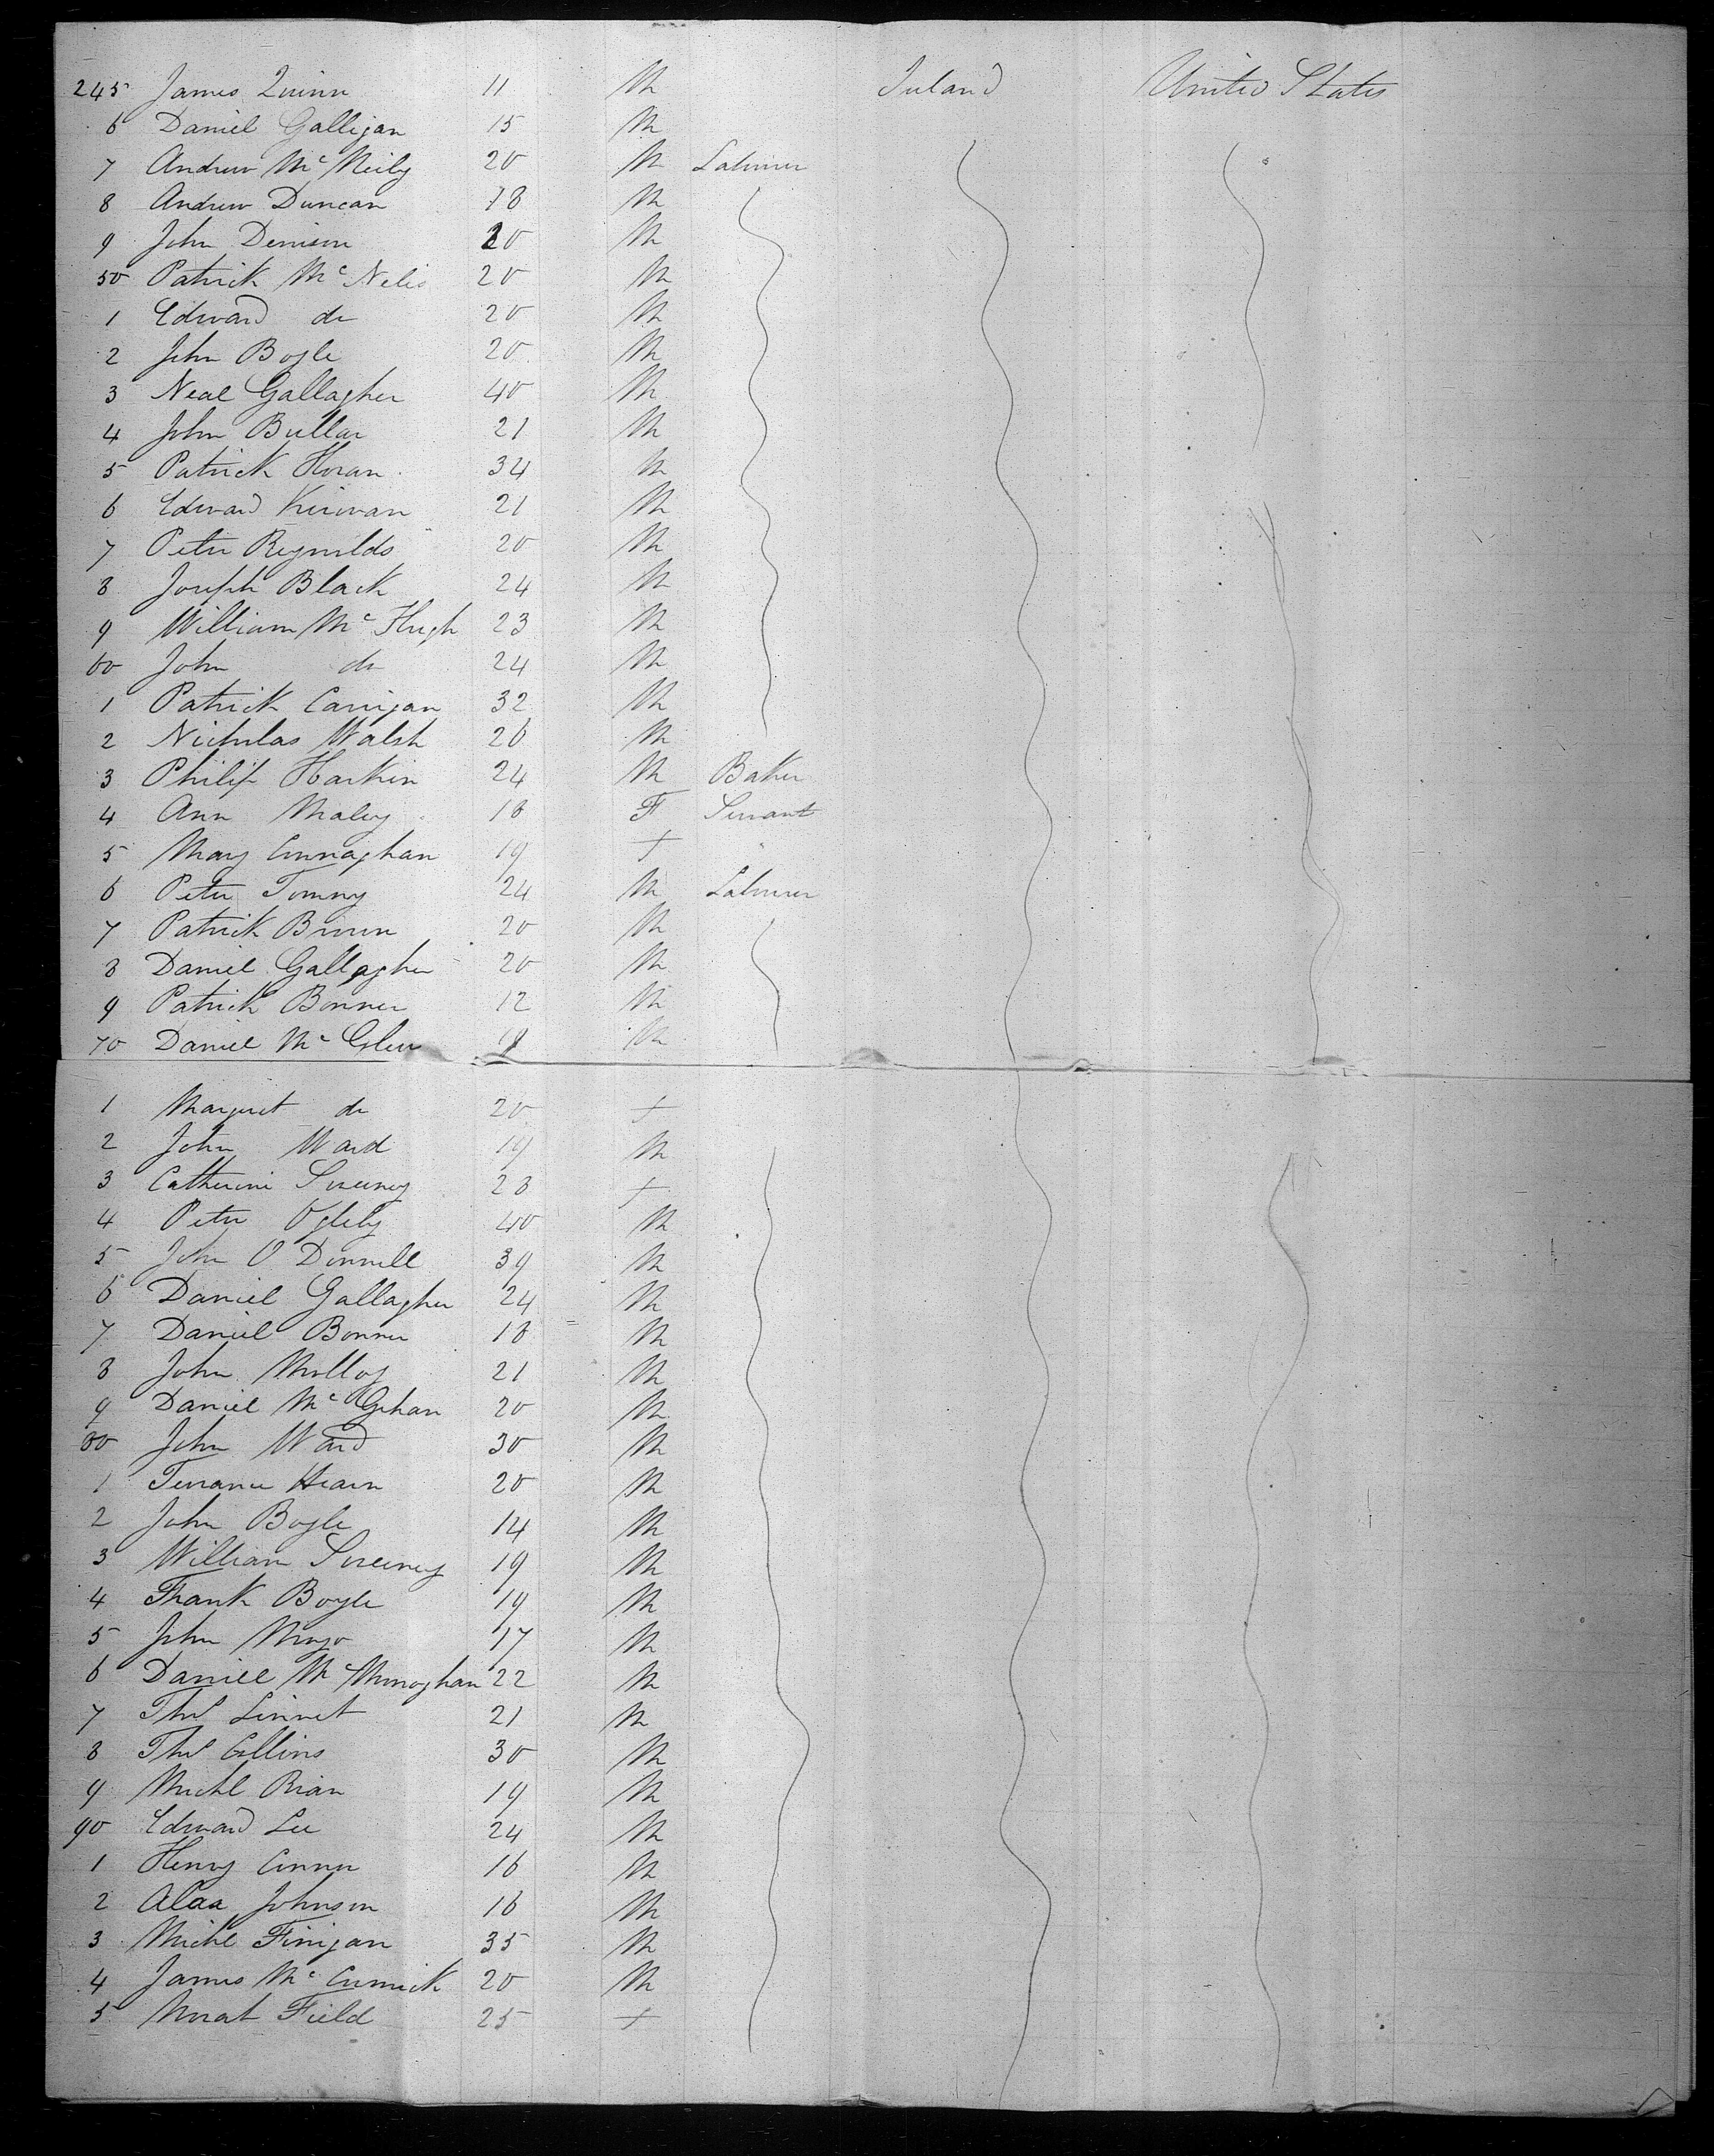 245 James Quinn 11 M Ireland United States
6 Daniel Galligan 15 M
7 Andrew McNeily 20 M Labourer
8 Andrew Duncan 18 M
9 John Denison 20 M
50 Patrick McNelis 20 M
1 Edward do 20 M
2 John Boyle 20 M
3 Neal Gallagher 40 M
4 John Bullar 21 M
5 Patrick Horan 34 M
6 Edward Kirwan 21 M
7 Peter Reynolds 20 M
8 Joseph Black 24 M
9 William McHugh 23 M
60 John do 24 M
1 Patrick Carrigan 32 M
2 Nicholas Walsh 26 M
3 Philip Harkin 24 M Baker
4 Ann Maley 18 F Servant
5 Mary Connaghan 19 F "
6 Peter Tommy 24 M Labourer
7 Patrick Brown 20 M
8 Daniel Gallagher 20 M
9 Patrick Bonner 12 M
70 Daniel McGlew 19 M
1 Margret do 20 F
2 John Ward 19 M
3 Catherine Sweeney 28 F
4 Peter Ogleby 40 M
5 John O Donnell 39 M
6 Daniel Gallagher 24 M
7 Daniel Bonner 18 M
8 John Molloy 21 M
9 Daniel McGehan 20 M
80 John Ward 30 M
1 Terrance Hearn 20 M
2 John Boyle 14 M
3 William Sweeney 19 M
4 Frank Boyle 19 M
5 John Mayo 17 M
6 Daniel McMonaghan 22 M
7 Thos Linnet 21 M
8 Thos Collins 30 M
9 Michl Rian 19 M
90 Edward Lee 24 M
1 Henry Connor 16 M
2 Johnson 16 M
3 Michl Finigan 35 M
4 James McCormick 20 M
5 Field 25 F